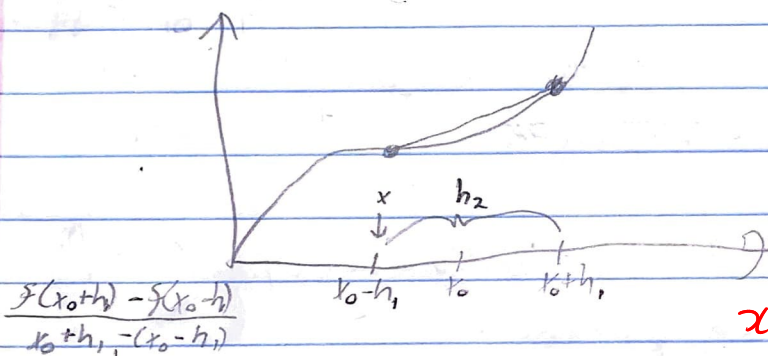 x
h₂
x₀-h₁ x₀ x₀+h₁
f(x₀+h₁) - f(x₀-h)
x₀+h₁-(x₀-h₁)
x